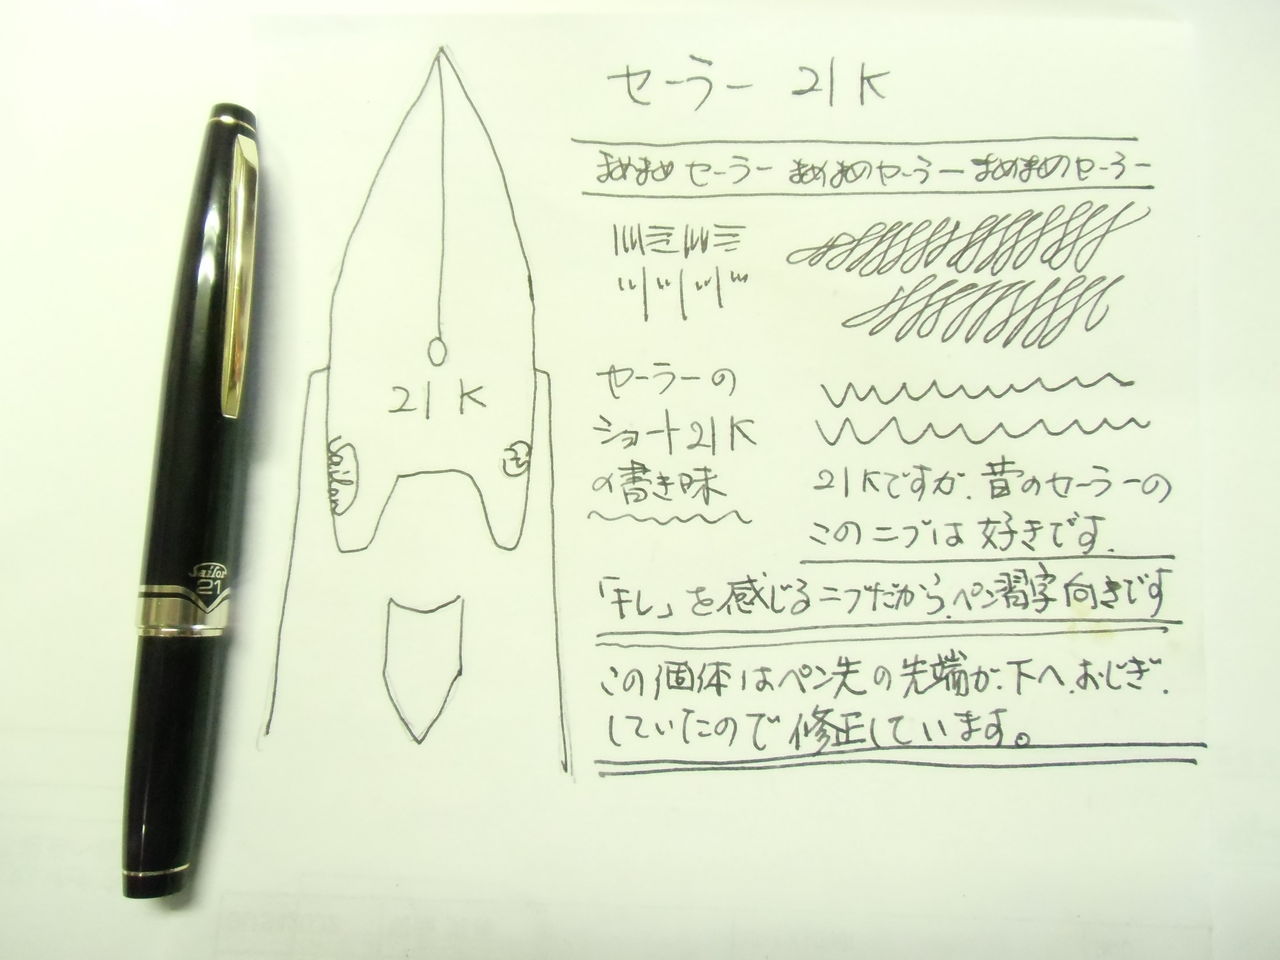 セーラー 21K
まめまめ セーラー まめまめのセーラー まめまめのセーラー
セーラーの
ショート21K
の書き味
21Kですが、昔のセーラーの
このニブは好きです。
「キレ」を感じるニブだから、ペン習字向きです
この個体はペン先の先端が、下へ、おじぎ、
していたので修正しています。
21K
Sailor
Sailor
21